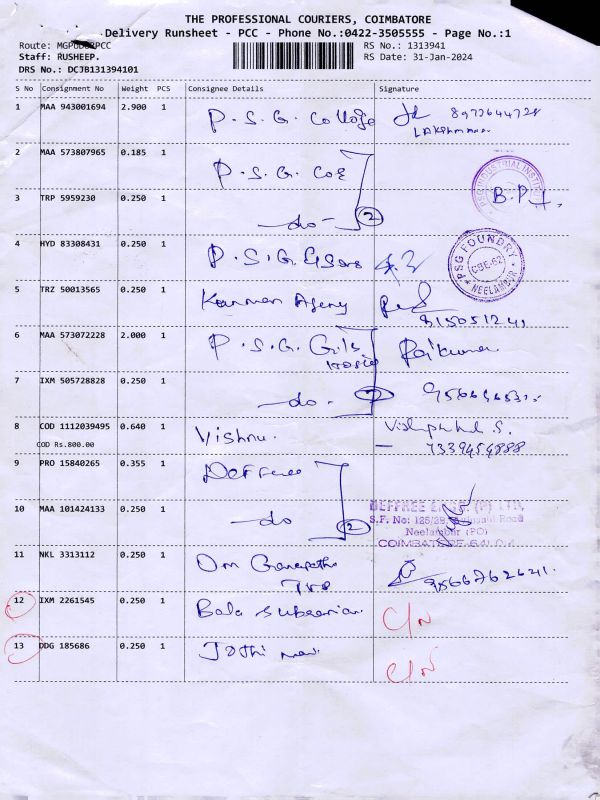 THE PROFESSIONAL COURIERS, COIMBATORE
Delivery Runsheet - PCC - Phone No.:0422-3505555 - Page No.:1
Route:
Staff: RUSHEEP.
DRS No.: DCJB131394101
RS No.: 1313941
RS Date: 31-Jan-2024
S No Consignment No Weight PCS Consignee Details Signature
1 MAA 943001694 2.900 1 P.S.G. College 8973644728
LAKSHMANA
2 MAA 573807965 0.185 1 P.S.G. COE
PSG INDUSTRIAL INSTITUTE
3 TRP 5959230 0.250 1 -do- 2 B.P.
4 HYD 83308431 0.250 1 P.S.G.
PSG FOUNDRY
CBE-62
NEELAMBUR
5 TRZ 50013565 0.250 1 Kannan Agency
6 MAA 573072228 2.000 1 P.S.G. Girls Rajkumar
Hostel
7 IXM 505728828 0.250 1 -do- 2
8 COD 1112039495 0.640 1 Vishnu.
COD Rs.800.00 7339454888
9 PRO 15840265 0.355 1
10 MAA 101424133 0.250 1 -do 2
S.F. No: 125/2B, Road
Neelambur (PO)
COIMBATORE
11 NKL 3313112 0.250 1 Om Ganapathi 9566762641.
12 IXM 2261545 0.250 1 Bala Subramanian C/N
13 DDG 185686 0.250 1 Jothi mani C/N